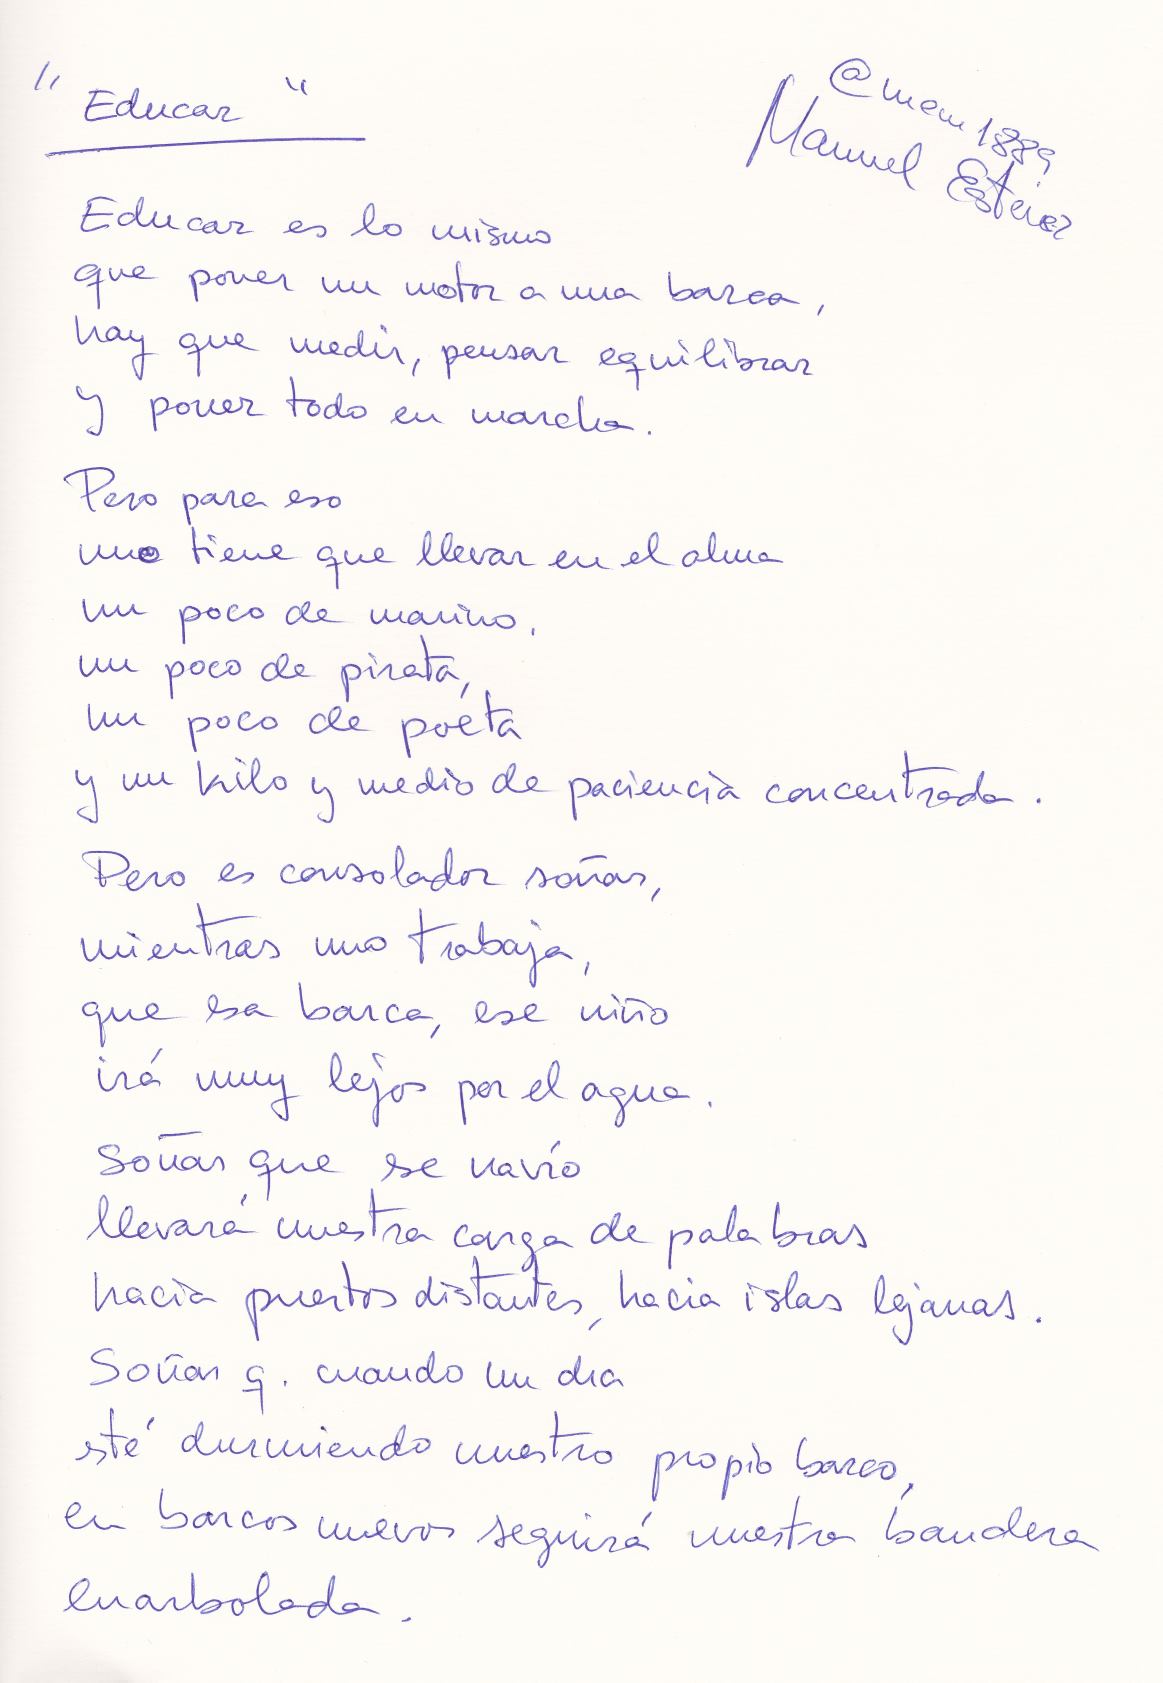 "Educar"
@mem1889
Manuel Estévez
Educar es lo mismo
que poner un motor a una barca,
hay que medir, pensar equilibrar
y poner todo en marcha.
Pero para eso
uno tiene que llevar en el alma
un poco de marino,
un poco de pirata,
un poco de poeta
y un kilo y medio de paciencia concentrada.
Pero es consolador soñar,
mientras uno trabaja,
que esa barca, ese niño
irá muy lejos por el agua.
Soñar que ese navío
llevará nuestra carga de palabras
hacia puertos distantes, hacia islas lejanas.
Soñar q. cuando un dia
esté durmiendo nuestro propio barco,
en barcos nuevos seguirá nuestra bandera
enarbolada.